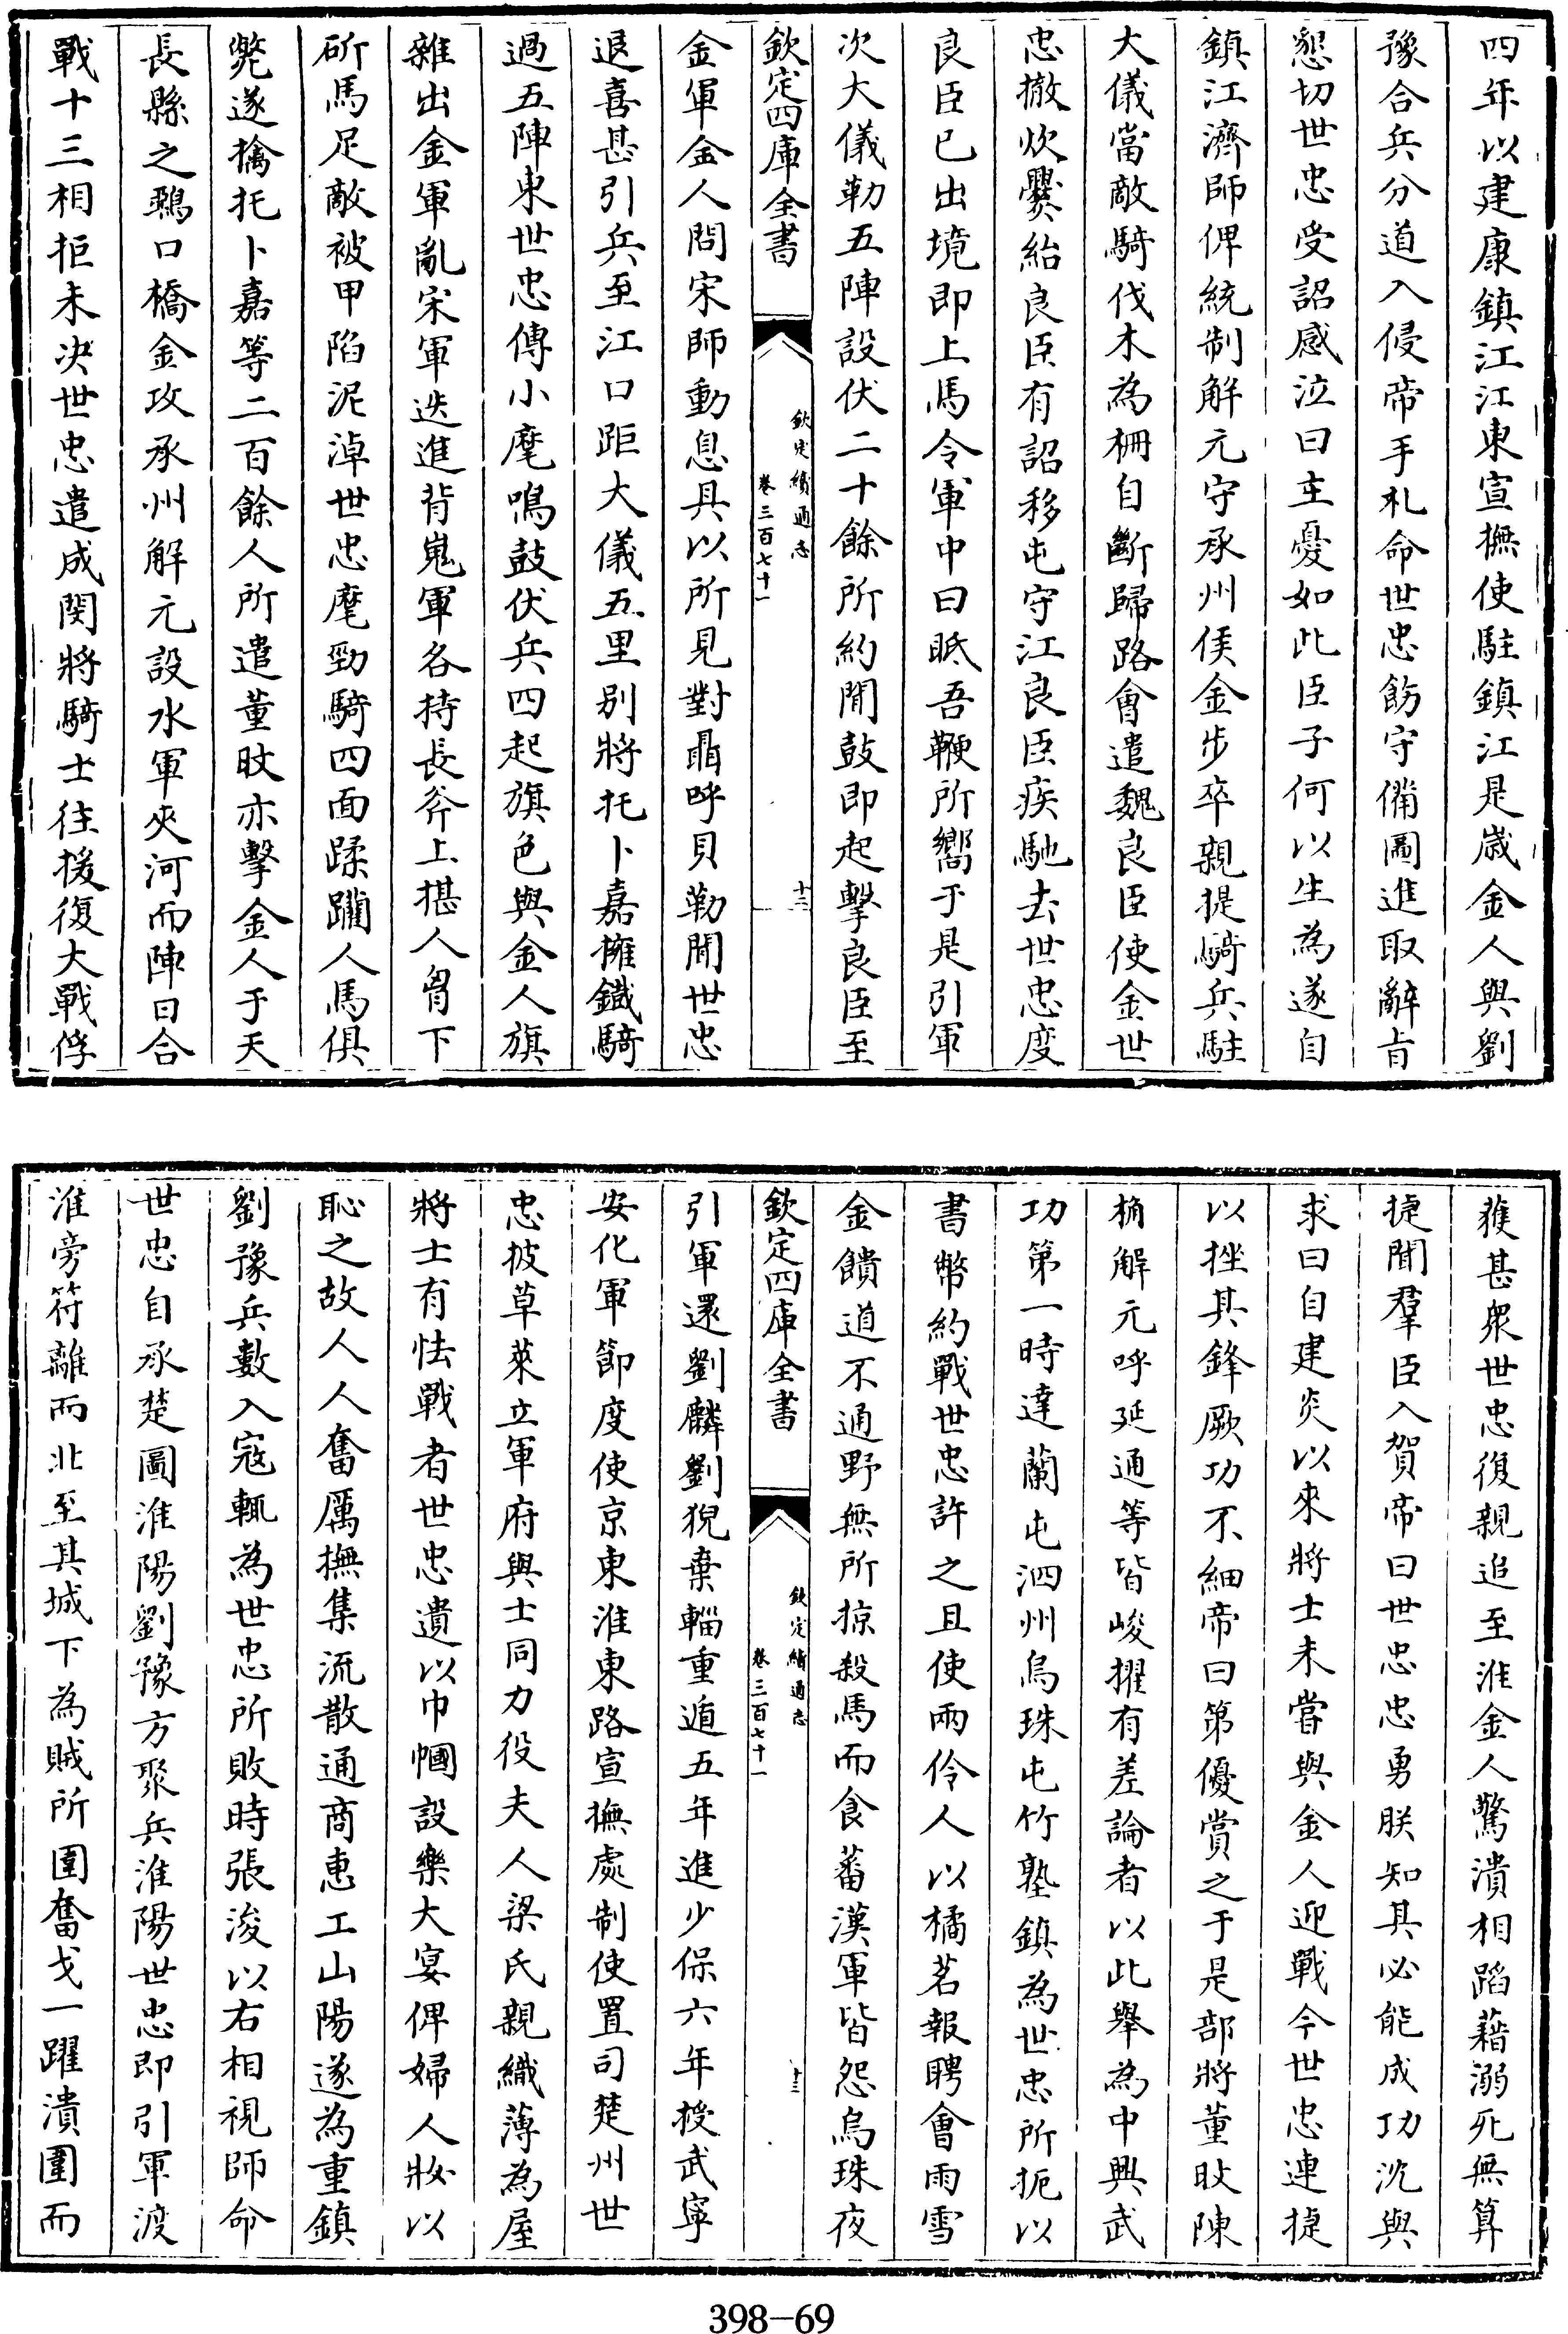 四年以建康鎮江江東宣撫使駐鎮江是歲金人與劉
豫合兵分道入侵帝手札命世忠飭守備圖進取辭旨
懇切世忠受詔感泣曰主憂如此臣子何以生為遂自
鎮江濟師俾統制解元守承州俟金步卒親提騎兵駐
大儀當敵騎伐木為柵自斷歸路會遣魏良臣使金世
忠撤炊爨紿良臣有詔移屯守江良臣疾馳去世忠度
良臣已出境即上馬令軍中曰眡吾鞭所嚮于是引軍
次大儀勒五陣設伏二十餘所約聞鼓即起擊良臣至
欽定四庫全書
欽定續通志
卷三百七十一
十三
金軍金人問宋師動息具以所見對聶呼貝勒聞世忠
退喜甚引兵至江口距大儀五里別將托卜嘉擁鐵騎
過五陣東世忠傳小麾鳴鼓伏兵四起旗色與金人旗
雜出金軍亂宋軍迭進背嵬軍各持長斧上揕人胷下
斫馬足敵被甲陷泥淖世忠麾勁騎四面蹂躪人馬俱
斃遂擒托卜嘉等二百餘人所遣董旼亦擊金人于天
長縣之鵶口橋金攻承州解元設水軍夾河而陣日合
戰十三相拒未決世忠遣成閔將騎士往援復大戰俘
獲甚衆世忠復親追至淮金人驚潰相蹈藉溺死無算
捷聞羣臣入賀帝曰世忠忠勇朕知其必能成功沈與
求曰自建炎以來將士未嘗與金人迎戰今世忠連捷
以挫其鋒厥功不細帝曰第優賞之于是部將董旼陳
桷解元呼延通等皆峻擢有差論者以此舉為中興武
功第一時達蘭屯泗州烏珠屯竹塾鎮為世忠所扼以
書幣約戰世忠許之且使兩伶人以橘茗報聘會雨雪
金饋道不通野無所掠殺馬而食蕃漢軍皆怨烏珠夜
欽定四庫全書
欽定續通志
卷三百七十一
十三
引軍還劉麟劉猊棄輜重遁五年進少保六年授武寧
安化軍節度使京東淮東路宣撫處制使置司楚州世
忠披草萊立軍府與士同力役夫人梁氏親織薄為屋
將士有怯戰者世忠遺以巾幗設樂大宴俾婦人妝以
恥之故人人奮厲撫集流散通商惠工山陽遂為重鎮
劉豫兵數入寇輒為世忠所敗時張浚以右相視師命
世忠自承楚圖淮陽劉豫方聚兵淮陽世忠即引軍渡
淮旁符離而北至其城下為賊所圍奮戈一躍潰圍而
398-69